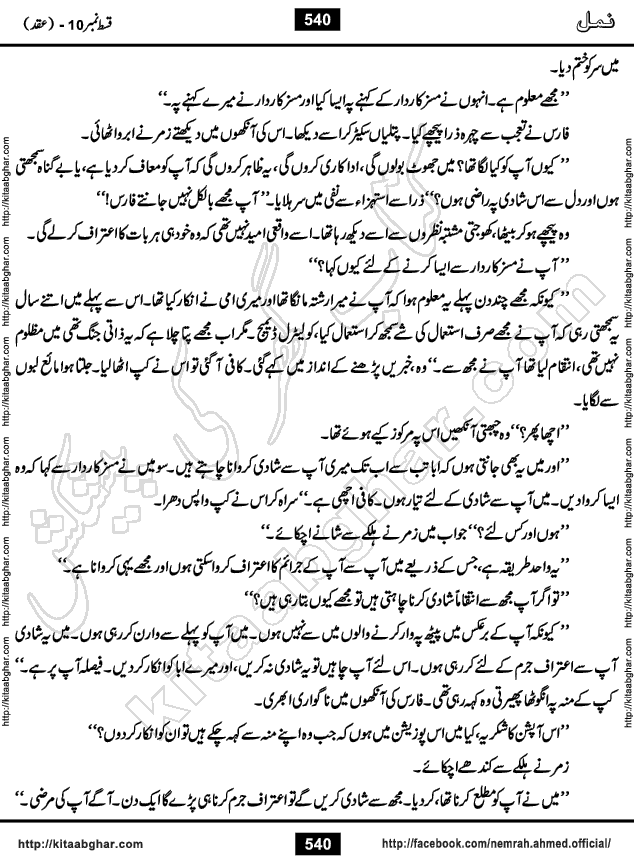 نمل
540
قسط نمبر 10 - (عقد)
میں سر کو ختم دیا۔
’’مجھے معلوم ہے۔ انہوں نے مسز کاردار کے کہنے پہ ایسا کیا اور مسز کاردار نے میرے کہنے پہ۔‘‘
فارس نے تعجب سے چہرہ ذرا پیچھے کیا۔ پتلیاں سکیڑ کر اسے دیکھا۔ اس کی آنکھوں میں دیکھتے زمر نے ابرو اٹھائی۔
’’کیوں آپ کو کیا لگا تھا؟ میں جھوٹ بولوں گی، اداکاری کروں گی، یہ ظاہر کروں گی کہ آپ کو معاف کر دیا ہے، یا بے گناہ سمجھتی
ہوں اور دل سے اس شادی پہ راضی ہوں؟‘‘ ذرا سے استہزاء سے نفی میں سر ہلایا۔ ’’آپ مجھے بالکل نہیں جانتے فارس!‘‘
وہ پیچھے ہو کر بیٹھا، کھوجتی مشتبہ نظروں سے اسے دیکھ رہا تھا۔ اسے واقعی امید نہیں تھی کہ وہ خود ہی ہر بات کا اعتراف کر لے گی۔
’’آپ نے مسز کاردار سے ایسا کرنے کے لئے کیوں کہا؟‘‘
’’کیونکہ مجھے چند دن پہلے یہ معلوم ہوا کہ آپ نے میرا رشتہ مانگا تھا اور میری امی نے انکار کیا تھا۔ اس سے پہلے میں اتنے سال
یہ سمجھتی رہی کہ آپ نے مجھے صرف استعمال کی شے سمجھ کر استعمال کیا، کولیٹرل ڈیمیج۔ مگر اب مجھے پتا چلا ہے کہ یہ ذاتی جنگ تھی میں مظلوم
نہیں تھی، انتقام لیا تھا آپ نے مجھ سے۔‘‘ وہ خبریں پڑھنے کے انداز میں کہے گئی۔ کافی آ گئی تو اس نے کپ اٹھا لیا۔ جلتا ہوا مائع لبوں
سے لگایا۔
’’اچھا پھر؟‘‘ وہ چبھتی آنکھیں اس پہ مرکوز کیے ہوئے تھا۔
’’اور میں یہ بھی جانتی ہوں کہ ابا تب سے اب تک میری آپ سے شادی کروانا چاہتے ہیں۔ سو میں نے مسز کاردار سے کہا کہ وہ
ایسا کروا دیں۔ میں آپ سے شادی کے لئے تیار ہوں۔ کافی اچھی ہے۔‘‘ سراہ کر اس نے کپ واپس دھرا۔
’’ہوں اور کس لئے؟‘‘ جواب میں زمر نے ہلکے سے شانے اچکائے۔
’’یہ واحد طریقہ ہے، جس کے ذریعے میں آپ سے آپ کے جرائم کا اعتراف کروا سکتی ہوں اور مجھے یہی کروانا ہے۔‘‘
’’تو اگر آپ مجھ سے انتقاماً شادی کرنا چاہتی ہیں تو مجھے کیوں بتا رہی ہیں؟‘‘
’’کیونکہ آپ کے برعکس میں پیٹھ پہ وار کرنے والوں میں سے نہیں ہوں۔ میں آپ کو پہلے سے وارن کر رہی ہوں۔ میں یہ شادی
آپ سے اعتراف جرم کے لئے کر رہی ہوں۔ اس لئے آپ چاہیں تو یہ شادی نہ کریں، اور میرے ابا کو انکار کر دیں۔ فیصلہ آپ پر ہے۔‘‘
کپ کے منہ پہ انگوٹھا پھیرتی وہ کہہ رہی تھی۔ فارس کی آنکھوں میں ناگواری ابھری۔
’’اس آپشن کا شکریہ، کیا میں اس پوزیشن میں ہوں کہ جب وہ اپنے منہ سے کہہ چکے ہیں تو ان کو انکار کر دوں؟‘‘
زمر نے ہلکے سے کندھے اچکائے۔
’’میں نے آپ کو مطلع کرنا تھا، کر دیا۔ مجھ سے شادی کریں گے تو اعتراف جرم کرنا ہی پڑے گا ایک دن۔ آگے آپ کی مرضی۔‘‘
http://kitaabghar.com
540
http://facebook.com/nemrah.ahmed.official/
http://kitaabghar.com http://kitaabghar.com http://kitaabghar.com http://kitaabghar.com http://kitaabghar.com http://kitaabghar.com
http://kitaabghar.com http://kitaabghar.com http://kitaabghar.com http://kitaabghar.com http://kitaabghar.com http://kitaabghar.com
کتاب گھر کی پیشکش
kitaabghar.com